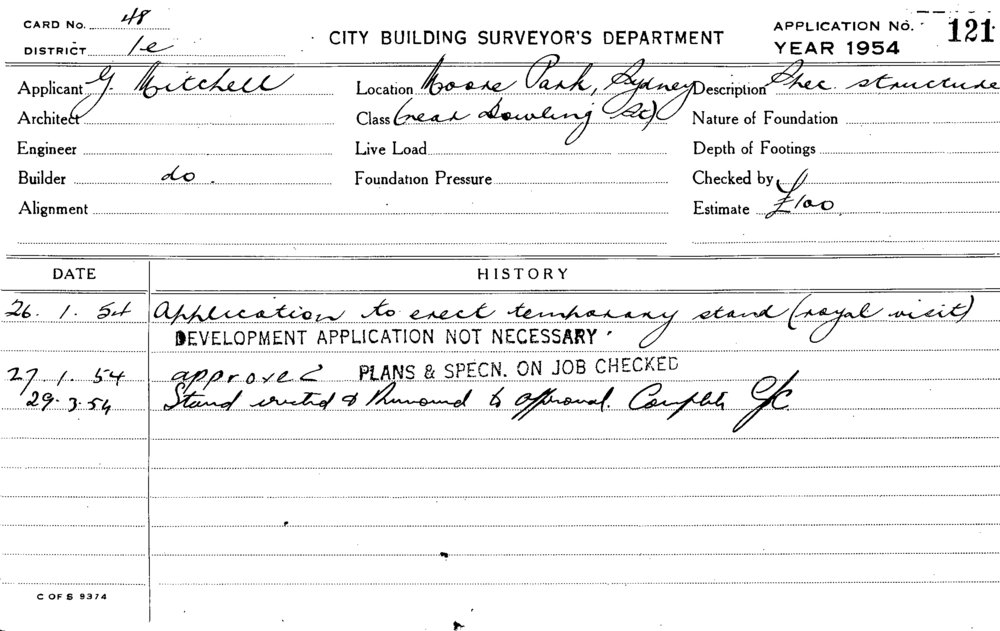 CARD No. 48
DISTRICT 1e
CITY BUILDING SURVEYOR'S DEPARTMENT
APPLICATION No. 121
YEAR 1954
Applicant G. Mitchell
Location Moore Park, Sydney
Description Spec. structure
Architect
Class (near Dowling St)
Nature of Foundation
Engineer
Live Load
Depth of Footings
Builder do.
Foundation Pressure
Checked by
Alignment
Estimate £100
DATE HISTORY
26. 1. 54 Application to erect temporary stand (royal visit)
DEVELOPMENT APPLICATION NOT NECESSARY
27. 1. 54 approved PLANS & SPECN. ON JOB CHECKED
29. 3. 54 Stand erected & removed to approval. Complete
C OF S 9374